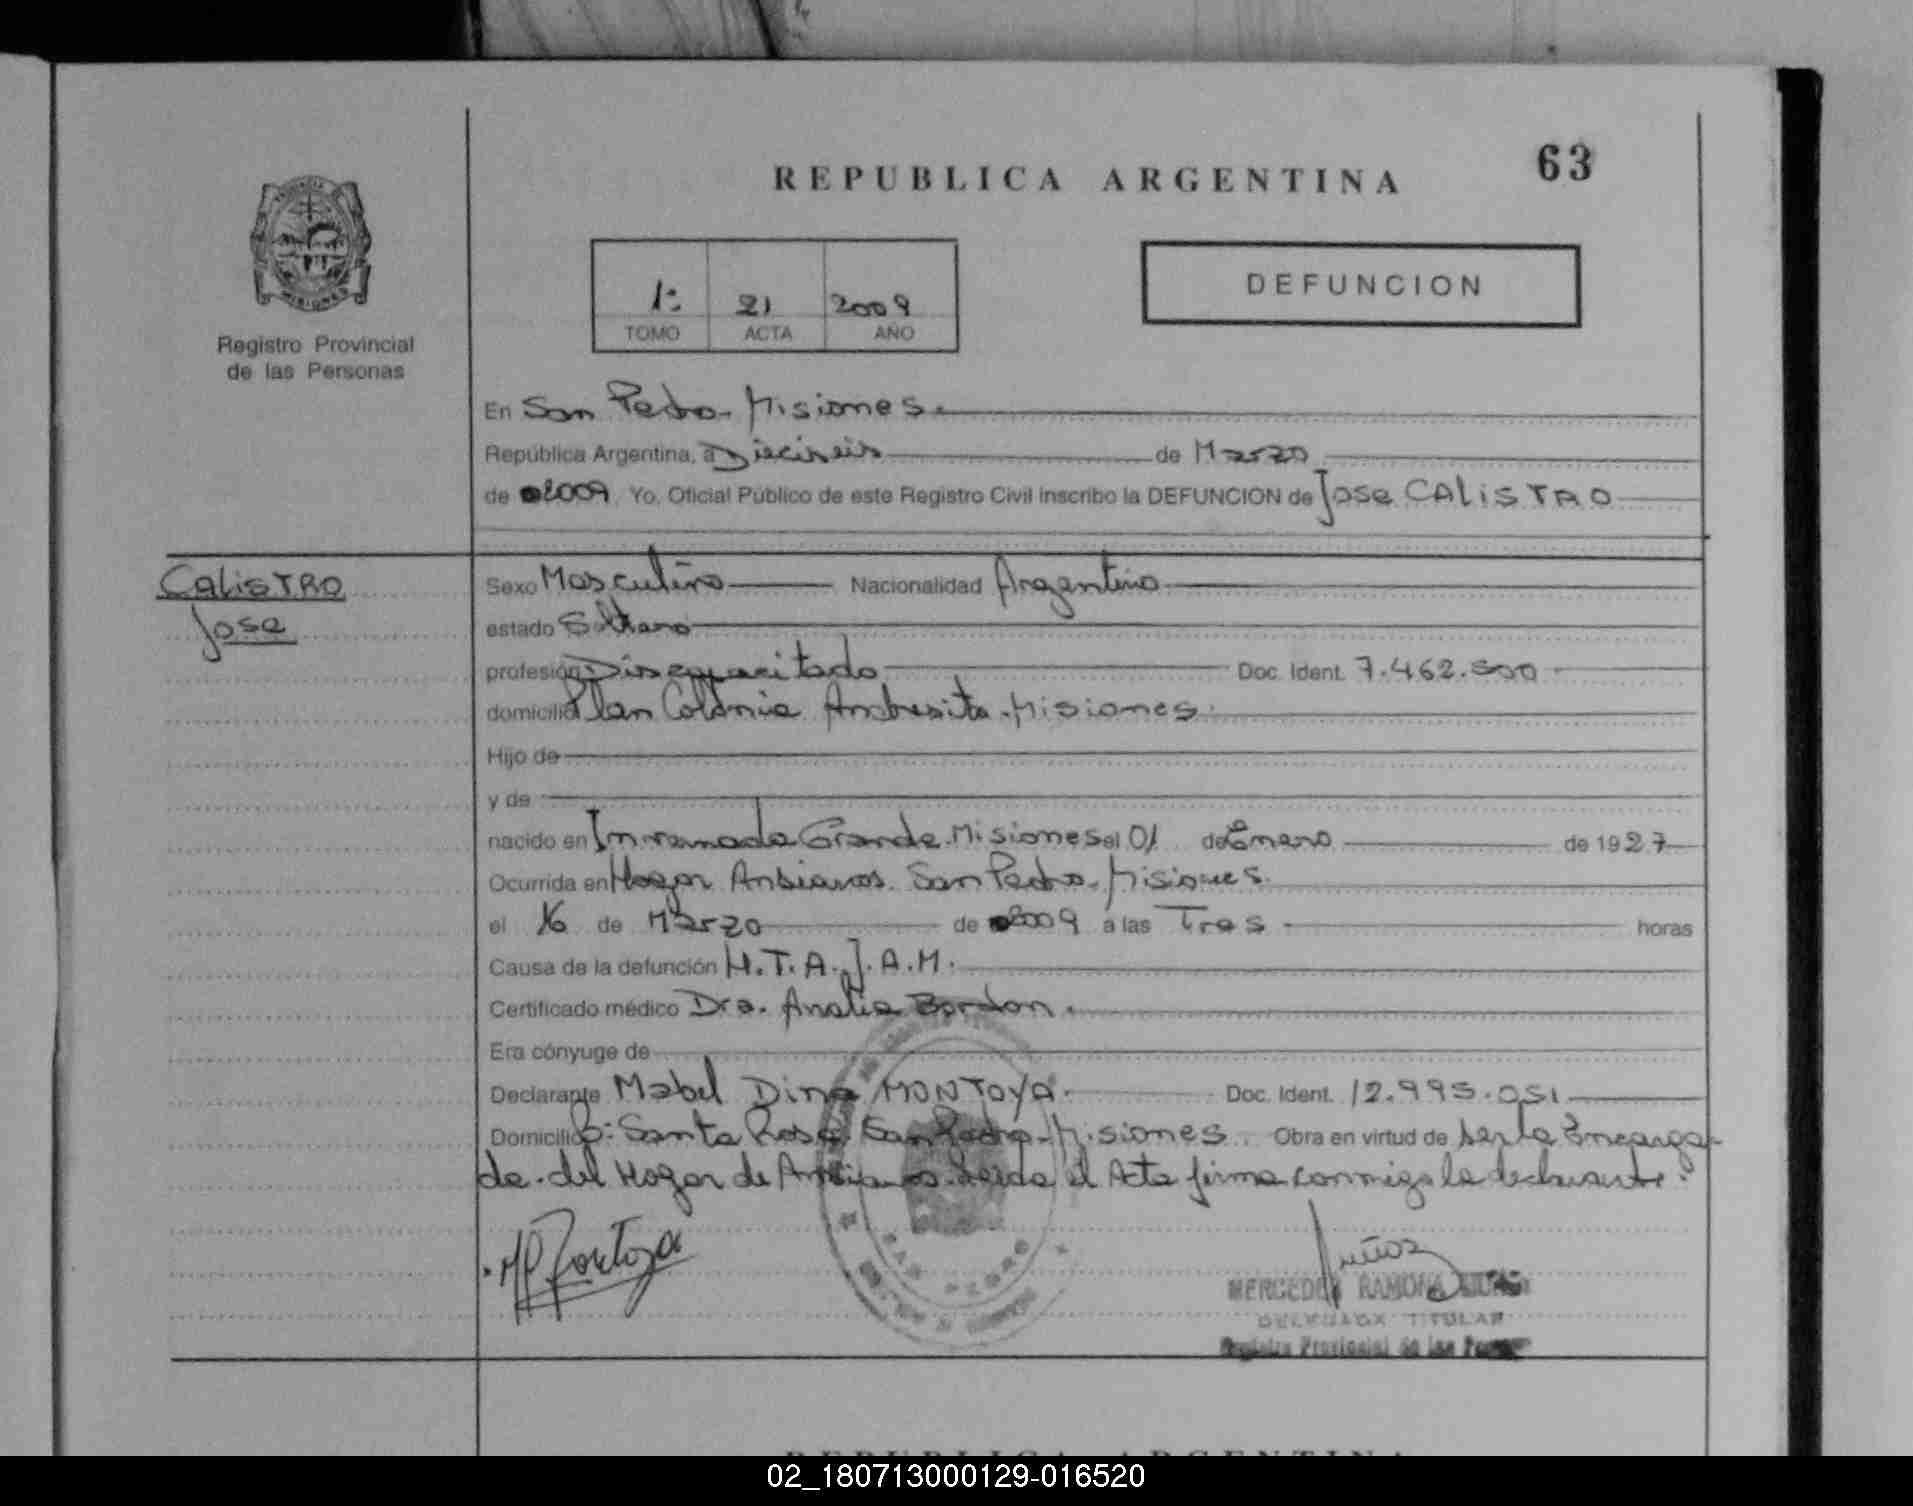 63
REPUBLICA ARGENTINA
PROVINCIA DE
MISIONES
Registro Provincial
de las Personas
1: 21 2009
TOMO ACTA AÑO
DEFUNCION
En San Pedro. Misiones.
República Argentina, a Dieciseis de Marzo
de 2009 Yo, Oficial Público de este Registro Civil inscribo la DEFUNCION de Jose CALISTRO
CALISTRO
Jose
Sexo Masculino Nacionalidad Argentino
estado Soltero
profesión Discapacitado Doc. Ident. 7.462.500
domicilio Plan Colonia Andresito. Misiones.
Hijo de
y de
nacido en Inramada Grande. Misiones el 01 de Enero de 1927
Ocurrida en Hogar Ansianos. San Pedro. Misiones.
el 16 de Marzo de 2009 a las Tres horas
Causa de la defunción H.T.A. J.A.M.
Certificado médico Dra. Analia Bordon.
Era cónyuge de
Declarante Mabel Dina MONTOYA. Doc. Ident. 12.995.051
Domicilio B: Santa Rosa. San Pedro. Misiones. Obra en virtud de ser la Encarga-
da. del Hogar de Ansianos. Leida el Acta firma conmigo la declarante.
SAN PEDRO
MERCEDES RAMONA
DELEGADA TITULAR
Registro Provincial de las
REPUBLICA ARGENTINA
02_180713000129-016520